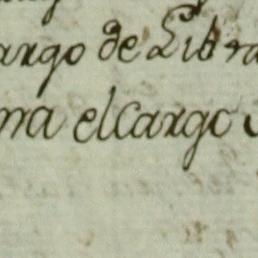 argo de Libra
ma el cargo